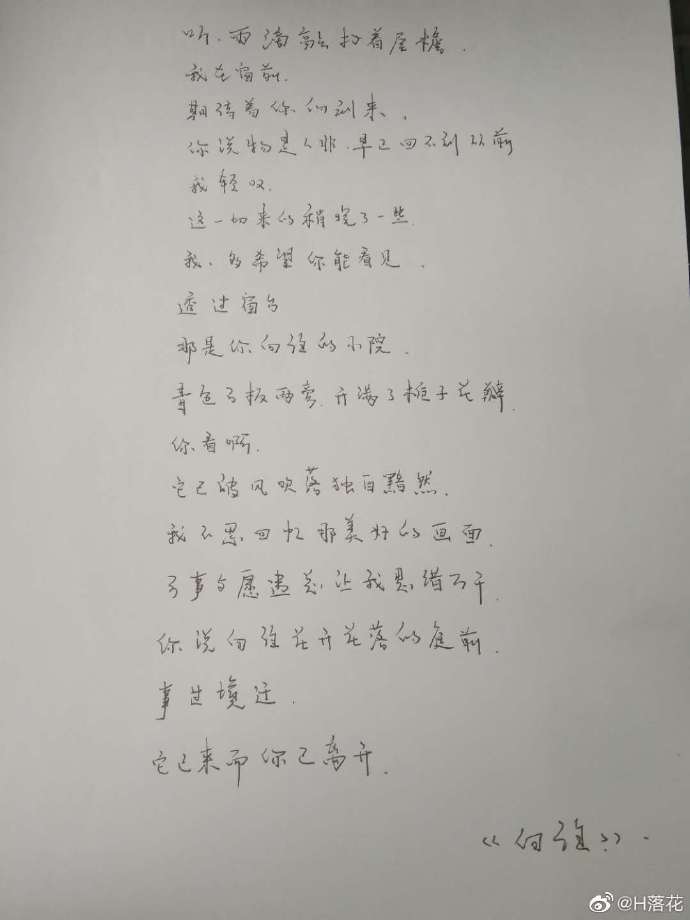 听.雨滴敲打着屋檐.
我在窗前.
期待着你的到来.
你说物是人非.早已回不到从前
我轻叹.
这一切来的稍晚了一些.
我.多希望你能看见.
透过窗台
那是你向往的小院.
青色石板两旁.开满了栀子花瓣.
你看啊.
它已被风吹落独自黯然.
我不愿回忆那美好的画面.
事与愿违 让我思绪万千.
你说向往花开花落的庭前.
事过境迁.
它已来而你已离开.
《向往》.
@H落花